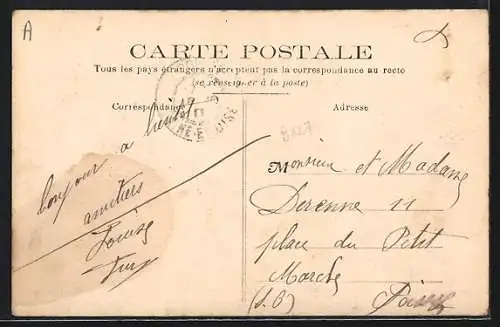 A
CARTE POSTALE
Tous les pays étrangers n'acceptent pas la correspondance au recto
(se renseigner à la poste)
Correspondance
Adresse
bonjour a bientôt
amitiers
Louise
Monsieur et Madame
Derenne 11
place du Petit
Marche
(S.O)